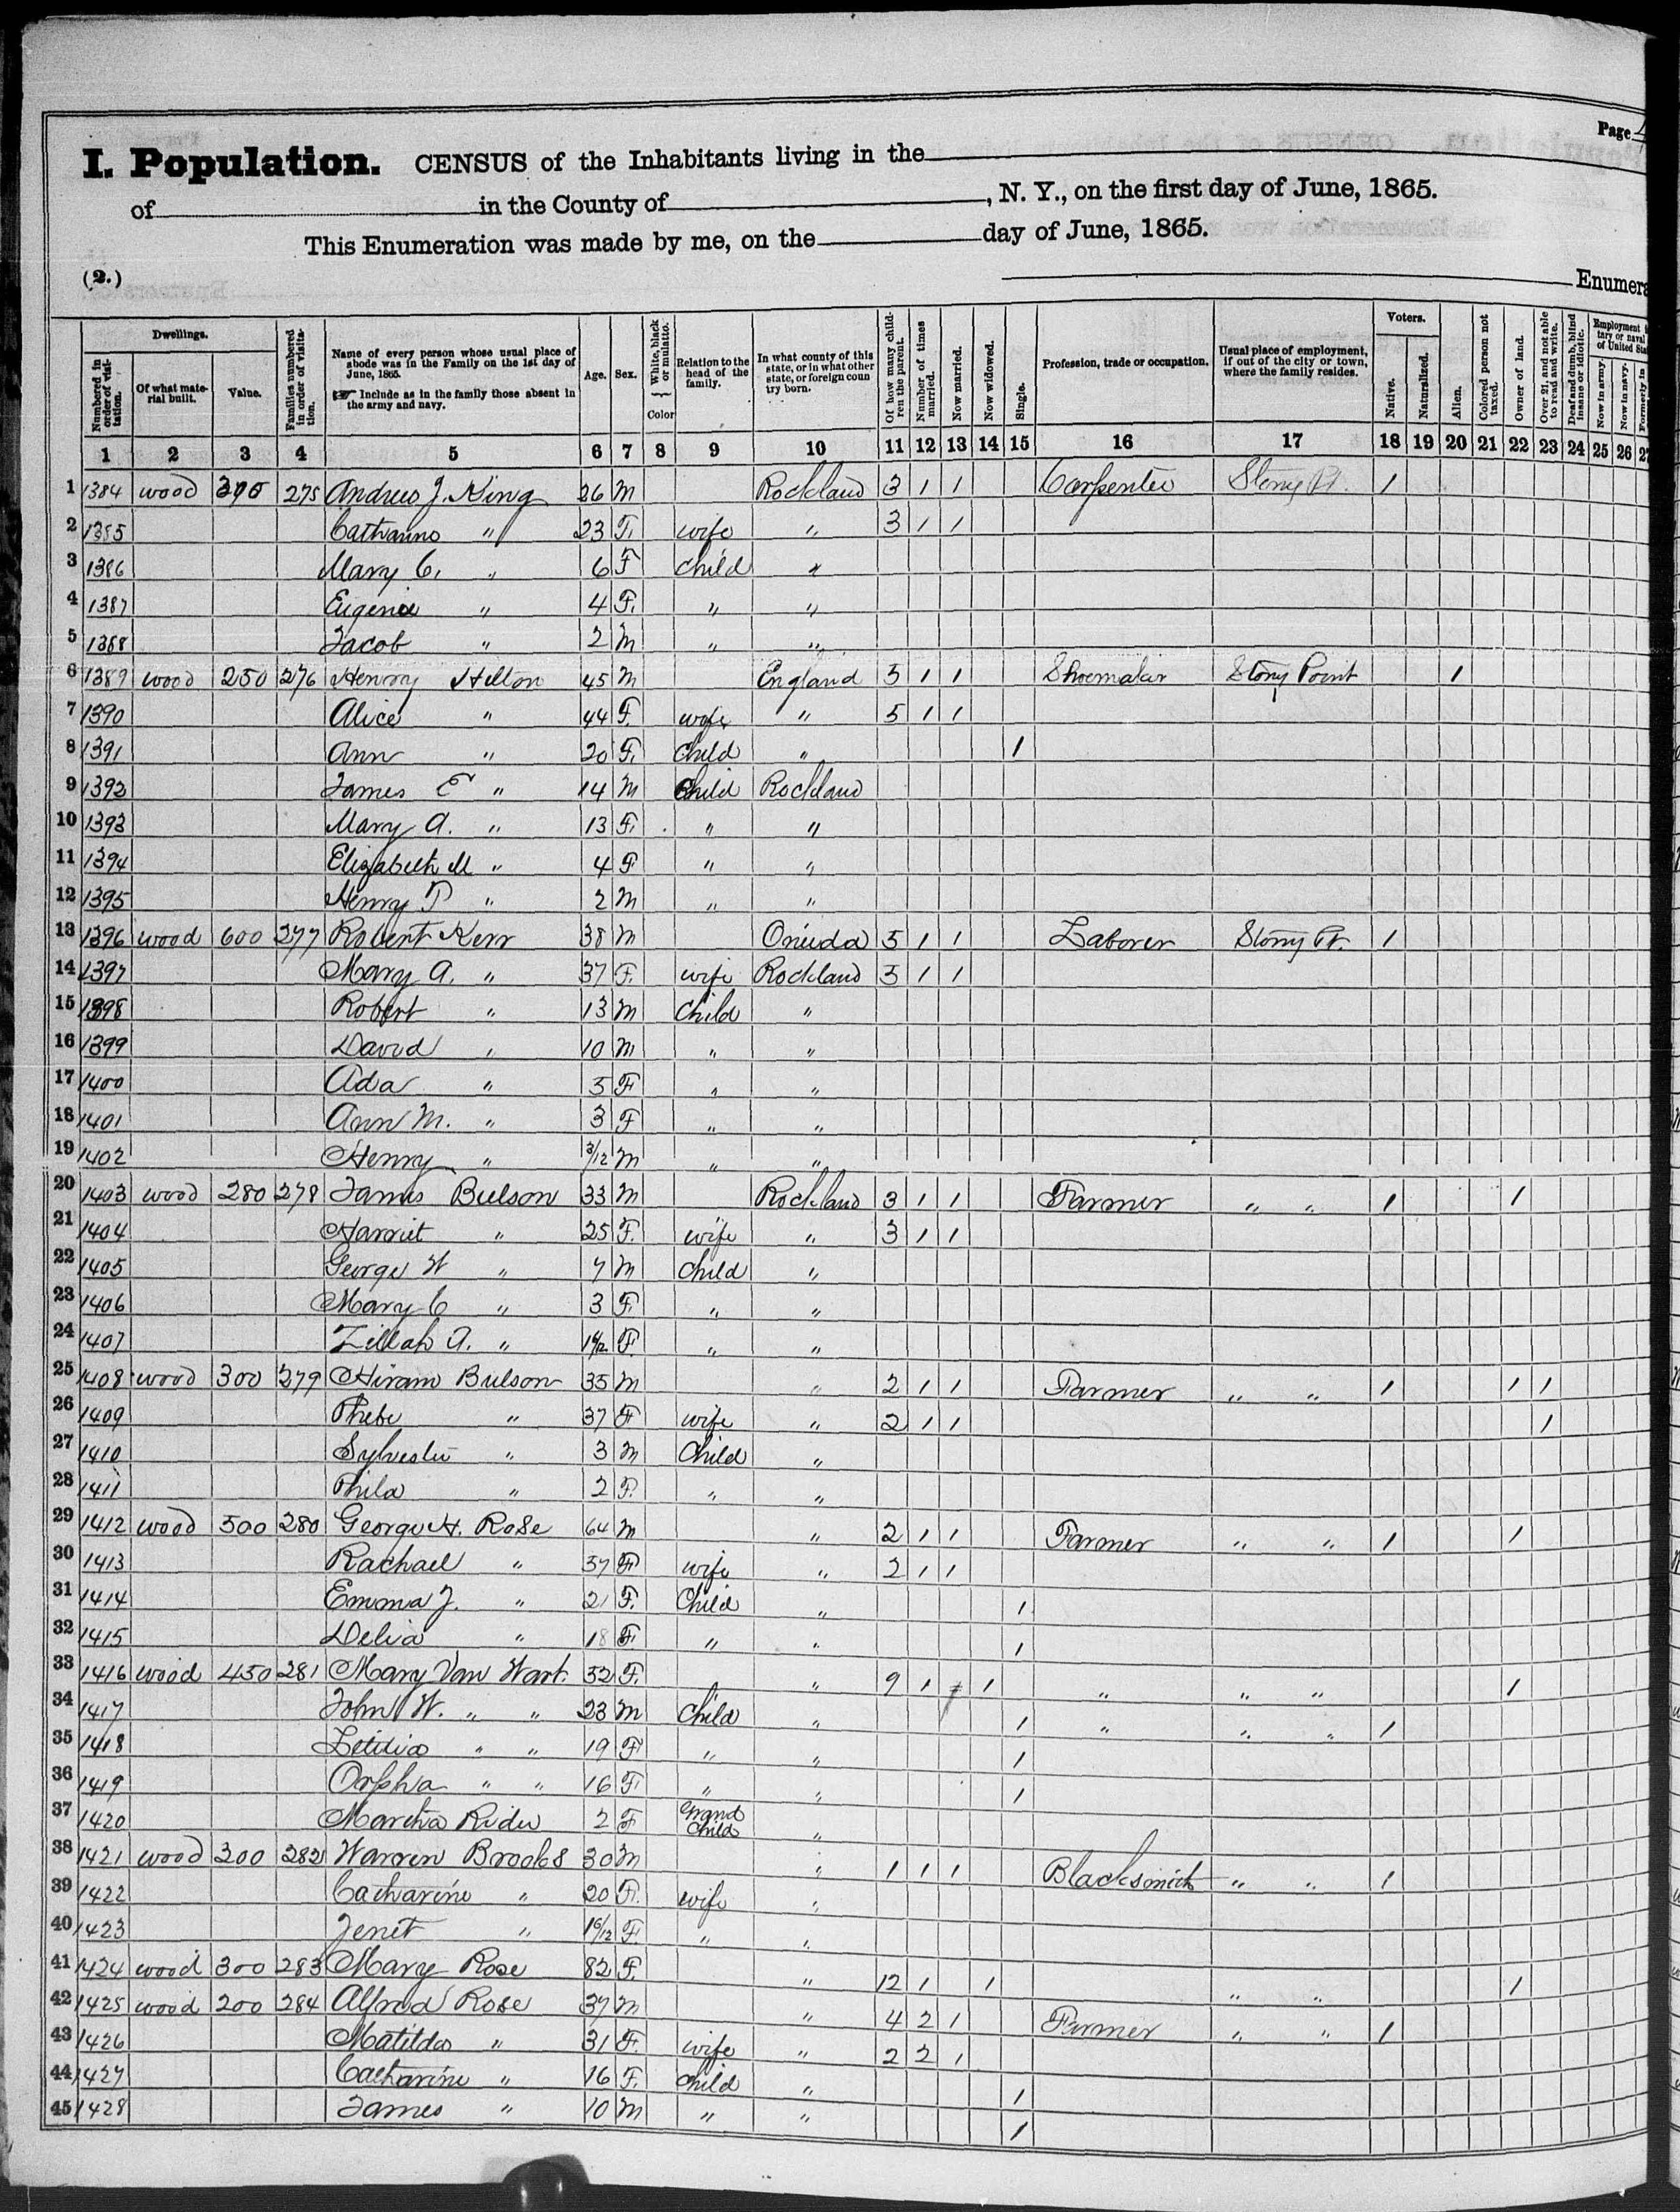 Page
I. Population. CENSUS of the Inhabitants living in the
of in the County of , N. Y., on the first day of June, 1865.
This Enumeration was made by me, on the day of June, 1865.
(2.) Enumera
Numbered in order of visitation.
Dwellings.
Of what material built.
Value.
Families numbered in order of visitation.
Name of every person whose usual place of abode was in the Family on the 1st day of June, 1865.
Include as in the family those absent in the army and navy.
Age.
Sex.
White, black or mulatto.
Color
Relation to the head of the family.
In what county of this state, or in what other state, or foreign coun try born.
Of how many children the parent.
Number of times married.
Now married.
Now widowed.
Single.
Profession, trade or occupation.
Usual place of employment, if out of the city or town, where the family resides.
Voters.
Native.
Naturalized.
Alien.
Colored person not taxed.
Owner of land.
Over 21, and not able to read and write.
Deaf and dumb, blind insane or idiotic.
Employment
tary or naval
of United Stat
Now in army.
Now in navy.
Formerly in
1 2 3 4 5 6 7 8 9 10 11 12 13 14 15 16 17 18 19 20 21 22 23 24 25 26 27
1 1384 wood 275 Andrew J. King 26 M Rockland 3 1 1 Carpenter Stony Pt. 1
2 1385 " 23 F. wife " 3 1 1
3 1386 Mary C. " 6 F child "
4 1387 " 4 F. " "
5 1388 Jacob " 2 M " "
6 1389 wood 250 276 Hilton 45 M England 5 1 1 Shoemaker Stony Point 1
7 1390 Alice " 44 F. wife " 5 1 1
8 1391 Ann " 20 F. Child " 1
9 1392 James E " 14 M Child Rockland
10 1393 Mary A. " 13 F. " "
11 1394 Elizabeth M " 4 F " "
12 1395 Henry T " 2 M " "
13 1396 wood 600 277 Robert Kerr 38 M Oneida 5 1 1 Laborer Stony Pt. 1
14 1397 Mary A. " 37 F. wife Rockland 5 1 1
15 1398 Robert " 13 M Child "
16 1399 David " 10 M " "
17 1400 Ada " 5 F " "
18 1401 Ann M. " 3 F " "
19 1402 Henry " 3/12 M " "
20 1403 wood 280 278 James Bulson 33 M Rockland 3 1 1 Farmer " " 1 1
21 1404 Harriet " 25 F. wife " 3 1 1
22 1405 George W " 7 M Child "
23 1406 Mary C " 3 F. " "
24 1407 Zillah A. " F. " "
25 1408 wood 300 279 Hiram Bulson 35 M " 2 1 1 Farmer " " 1 1 1
26 1409 Phebe " 37 F wife " 2 1 1 1
27 1410 Sylvester " 3 M Child "
28 1411 Phila " 2 F. " "
29 1412 wood 500 280 George H. Rose 64 M " 2 1 1 Farmer " " 1 1
30 1413 Rachael " 37 F wife " 2 1 1
31 1414 Emma J. " 21 F. Child " 1
32 1415 Delia " 18 F. " " 1
33 1416 wood 450 281 Mary Van Wart. 52 F. " 9 1 1 " " " 1
34 1417 John W. " " 23 M Child " 1 " " " 1
35 1418 Letitia " " 19 F " " 1
36 1419 Orpha " " 16 F " " 1
37 1420 Martha Rider 2 F Grand Child "
38 1421 wood 200 282 Warren Brooks 30 M " 1 1 1 Blacksmith " " 1
39 1422 Catharine " 20 F. wife "
40 1423 Jenet " F. " "
41 1424 wood 300 283 Mary Rose 82 F. " 12 1 1 " " 1
42 1425 wood 200 284 Alfred Rose 37 M " 4 2 1 Farmer " " 1
43 1426 Matilda " 31 F. wife " 2 2 1
44 1427 Catharine " 16 F. child " 1
45 1428 James " 10 M " " 1